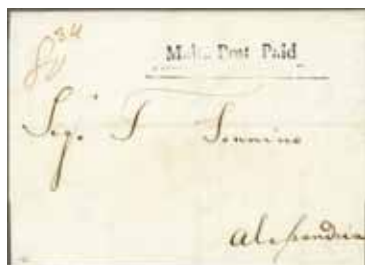 34
Malta Post Paid
Sigr. S Sonnino
Alessandria